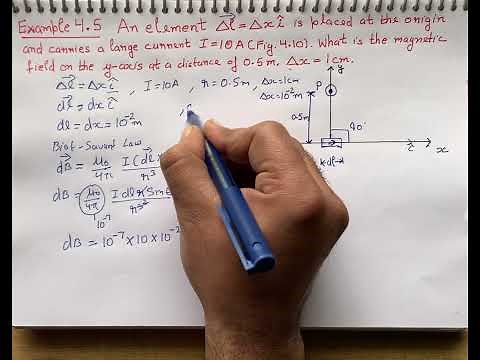 Example 4.5 An element Δl⃗ = Δx î is placed at the origin
and carries a large current I = 10A (Fig. 4.10). What is the magnetic
field on the y-axis at a distance of 0.5m. Δx = 1cm.
Δl⃗ = Δx î , I = 10A , r = 0.5m , Δx = 1cm
Δx = 10⁻²m
dl⃗ = dx î
dl = dx = 10⁻²m
Biot-Savart Law
dB⃗ = μ₀/4π I(dl⃗ × / r³
dB = μ₀/4π I dl r Sin / r³²
10⁻⁷
dB = 10⁻⁷ × 10 × 10⁻²
y
P
0.5m
90°
x
î